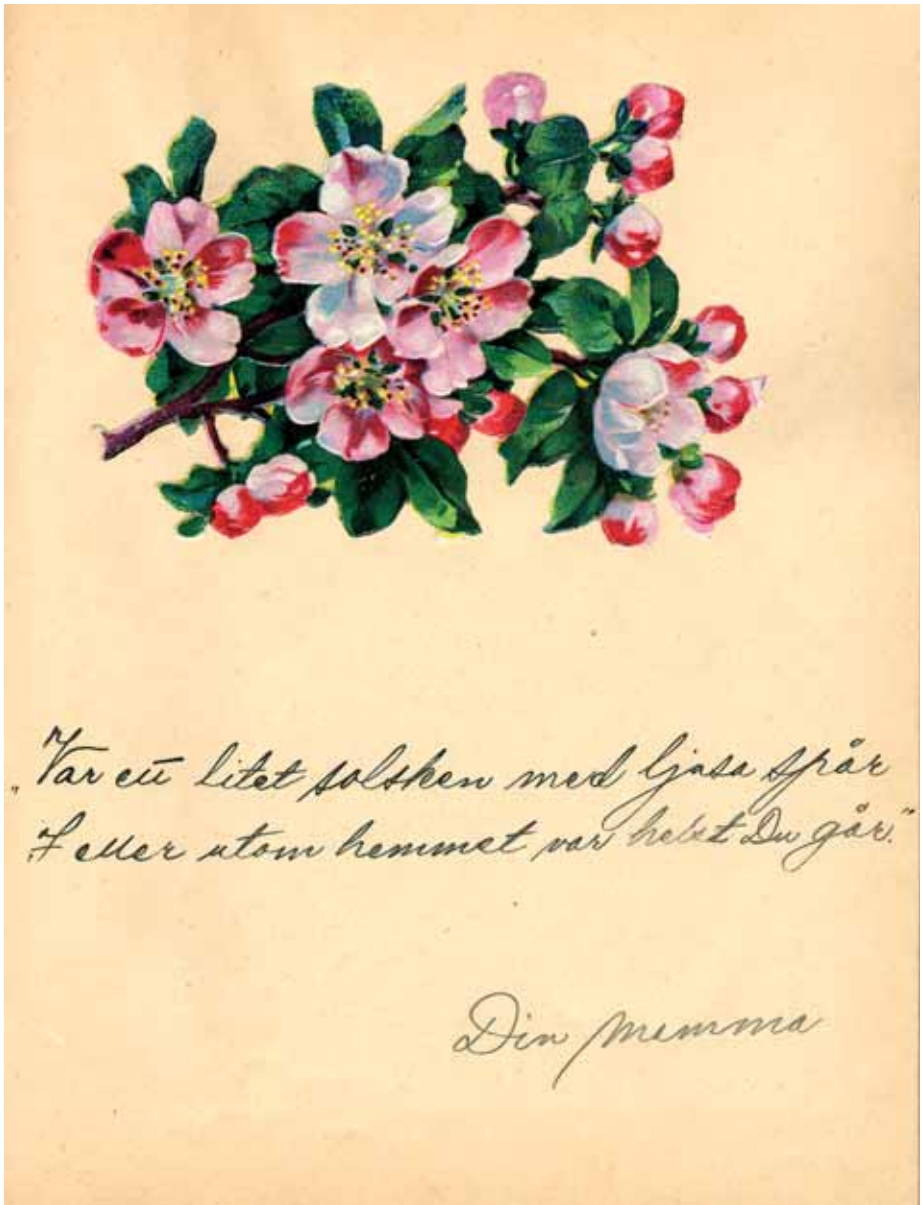 "Var ett litet solsken med ljusa spår
I eller utom hemmet var helst Du går."
Din mamma